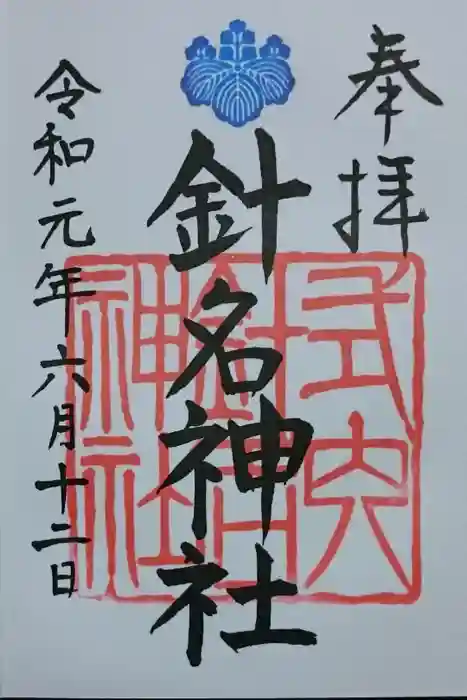 奉拝
式内
針名神社
針名神社
令和元年六月十二日